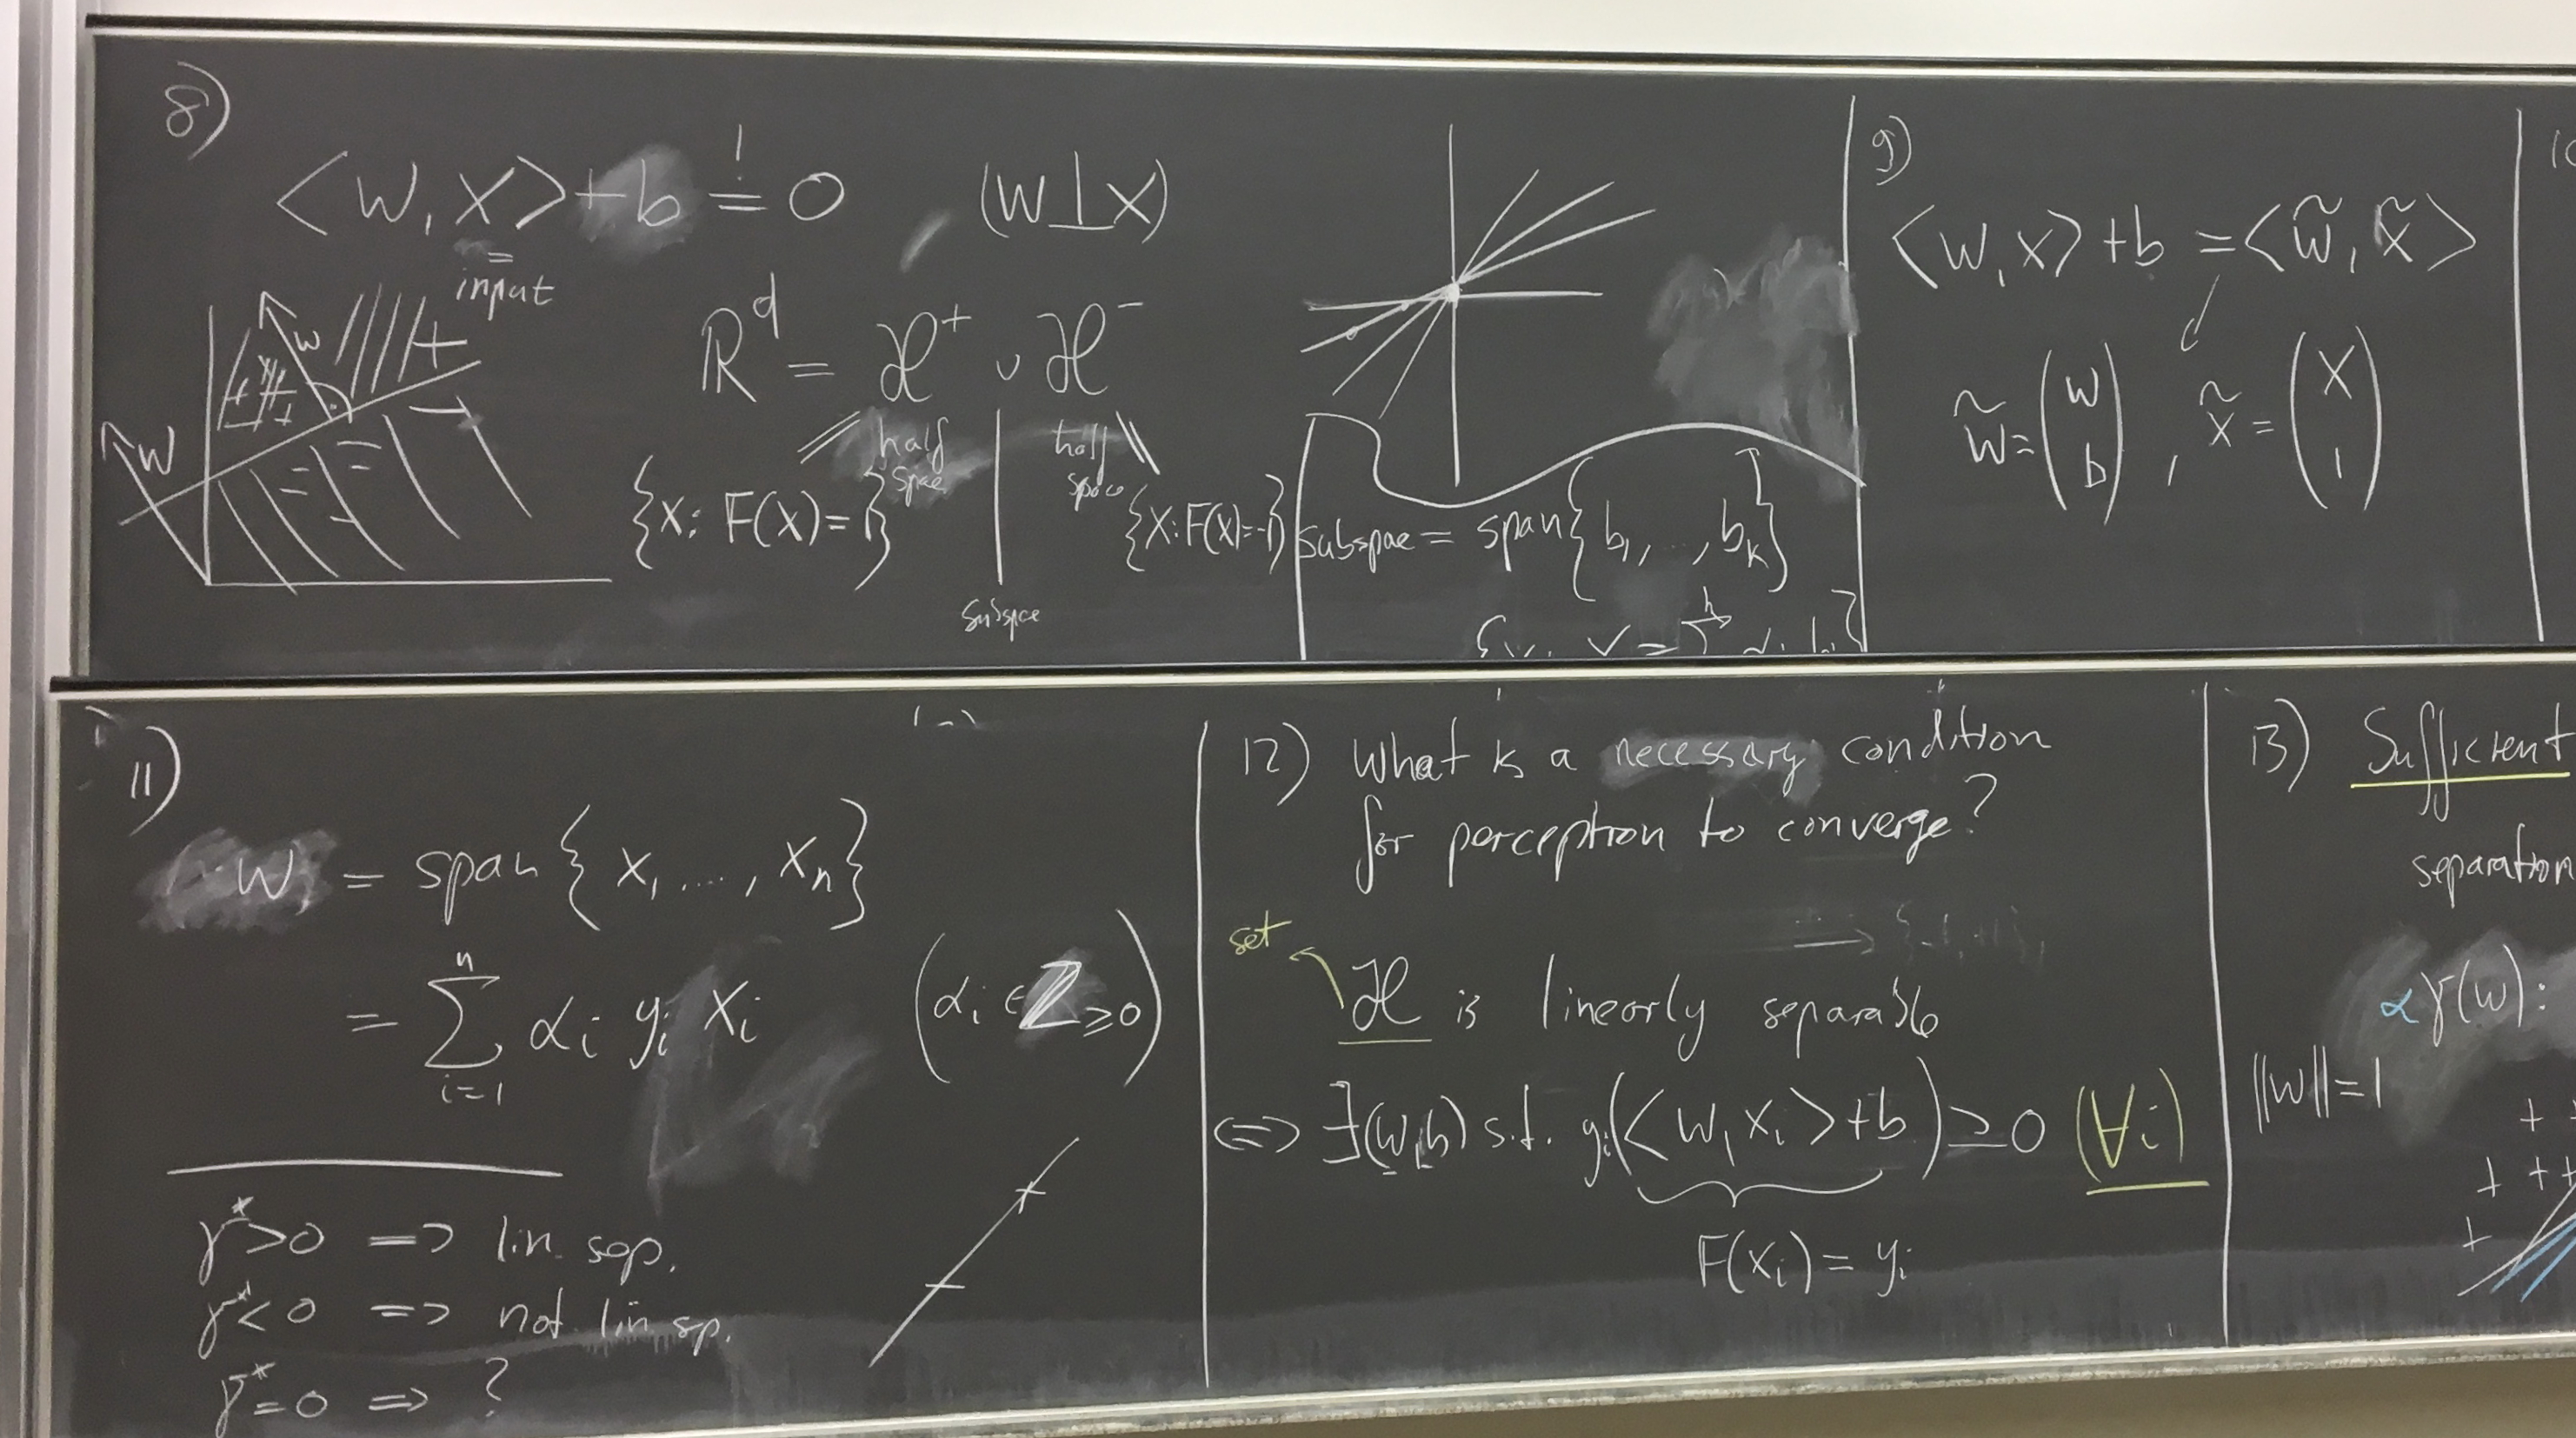 8)
<w, x> + b =! 0 (w ⊥ x)
input
w
+
w
R^d = ℋ^+ ∪ ℋ^-
half space
half space
{x: F(x)=1}
{x: F(x)=-1}
Subspce
Subspae = span{b_1, ..., b_k}
9)
<w, x> + b = <w̃, x̃>
w̃ = (w b), x̃ = (x 1)
11)
w = span{x_1, ..., x_n}
= ∑_{i=1}^{n} α_i y_i x_i (α_i ∈ ℤ_{≥0})
γ* > 0 => lin. sep.
γ* < 0 => not lin sp.
γ* = 0 => ?
12) What is a necessary condition
for perception to converge?
set
ℋ is linearly separable
<=> ∃(w,b) s.t. y_i(<w, x_i> + b) ≥ 0 (∀i)
F(x_i) = y_i
13) Sufficient
separation
αγ(w):
||w|| = 1
+
+ + +
+